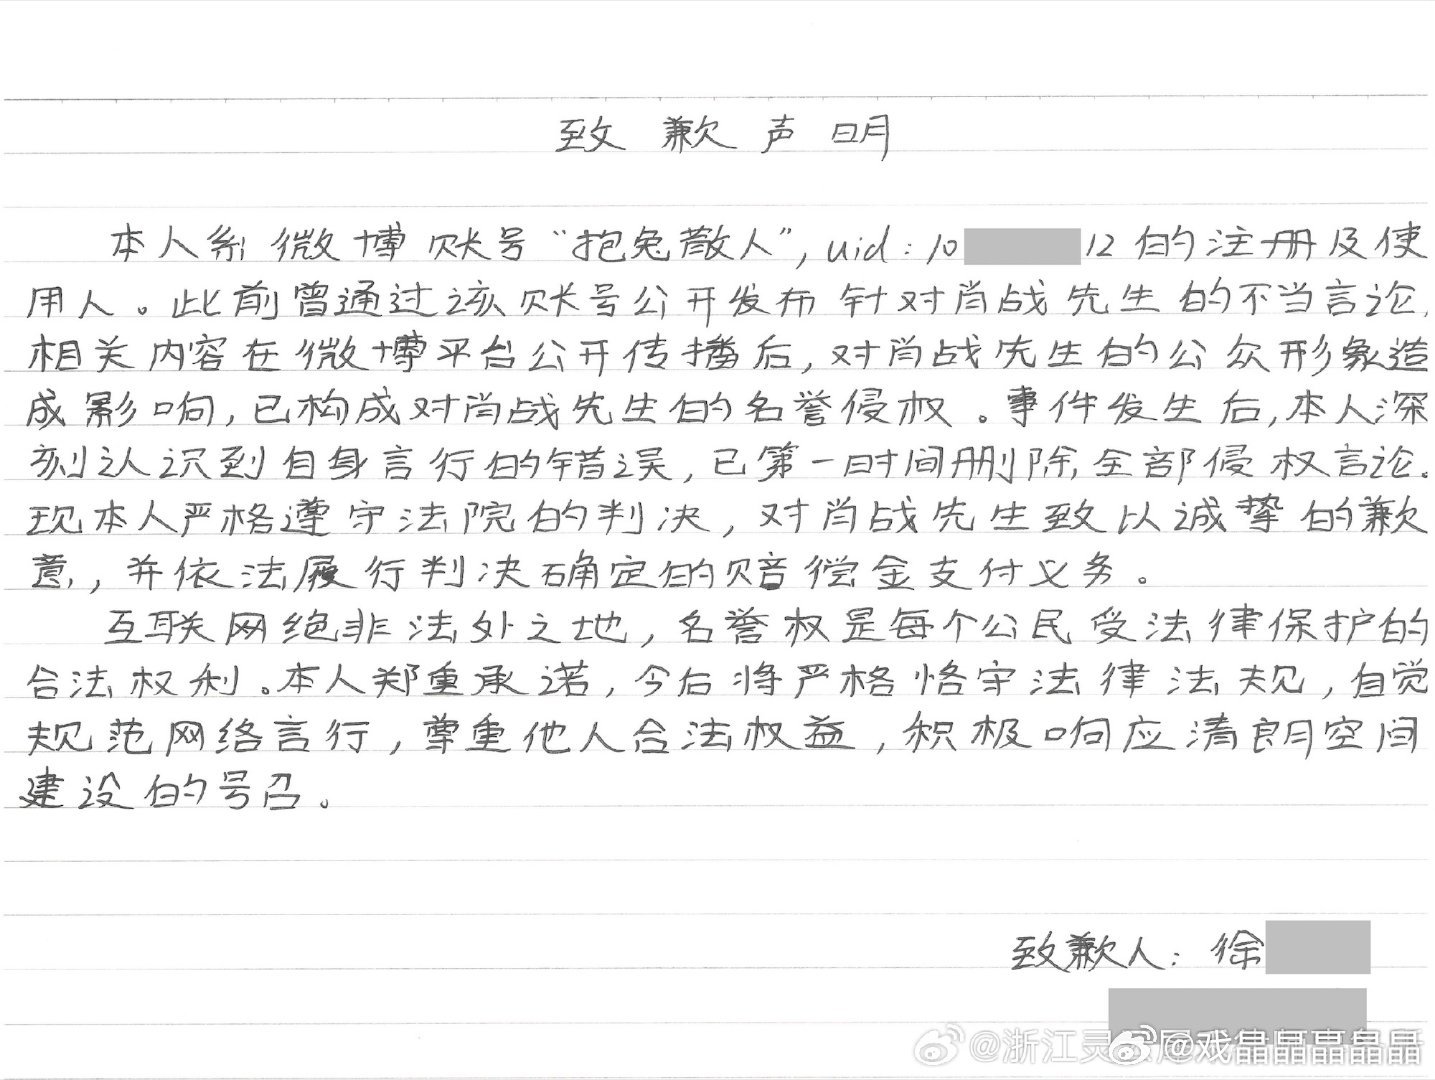 致歉声明
本人系微博账号“抱兔散人”，uid：10 12的注册及使
用人。此前曾通过该账号公开发布针对肖战先生的不当言论，
相关内容在微博平台公开传播后，对肖战先生的公众形象造
成影响，已构成对肖战先生的名誉侵权。事件发生后，本人深
刻认识到自身言行的错误，已第一时间删除全部侵权言论。
现本人严格遵守法院的判决，对肖战先生致以诚挚的歉
意，并依法履行判决确定的赔偿金支付义务。
互联网绝非法外之地，名誉权是每个公民受法律保护的
合法权利。本人郑重承诺，今后将严格恪守法律法规，自觉
规范网络言行，尊重他人合法权益，积极响应清朗空间
建设的号召。
致歉人：徐
@浙江灵
@戏